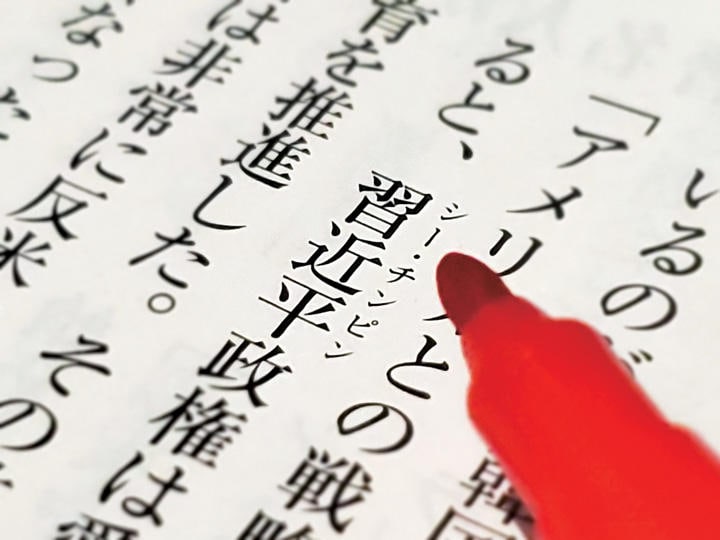 いるのが韓国
「アメリカとの戦略
ると、習近平政権は愛
シー・チンピン
育を推進した。その
は非常に反米
なった